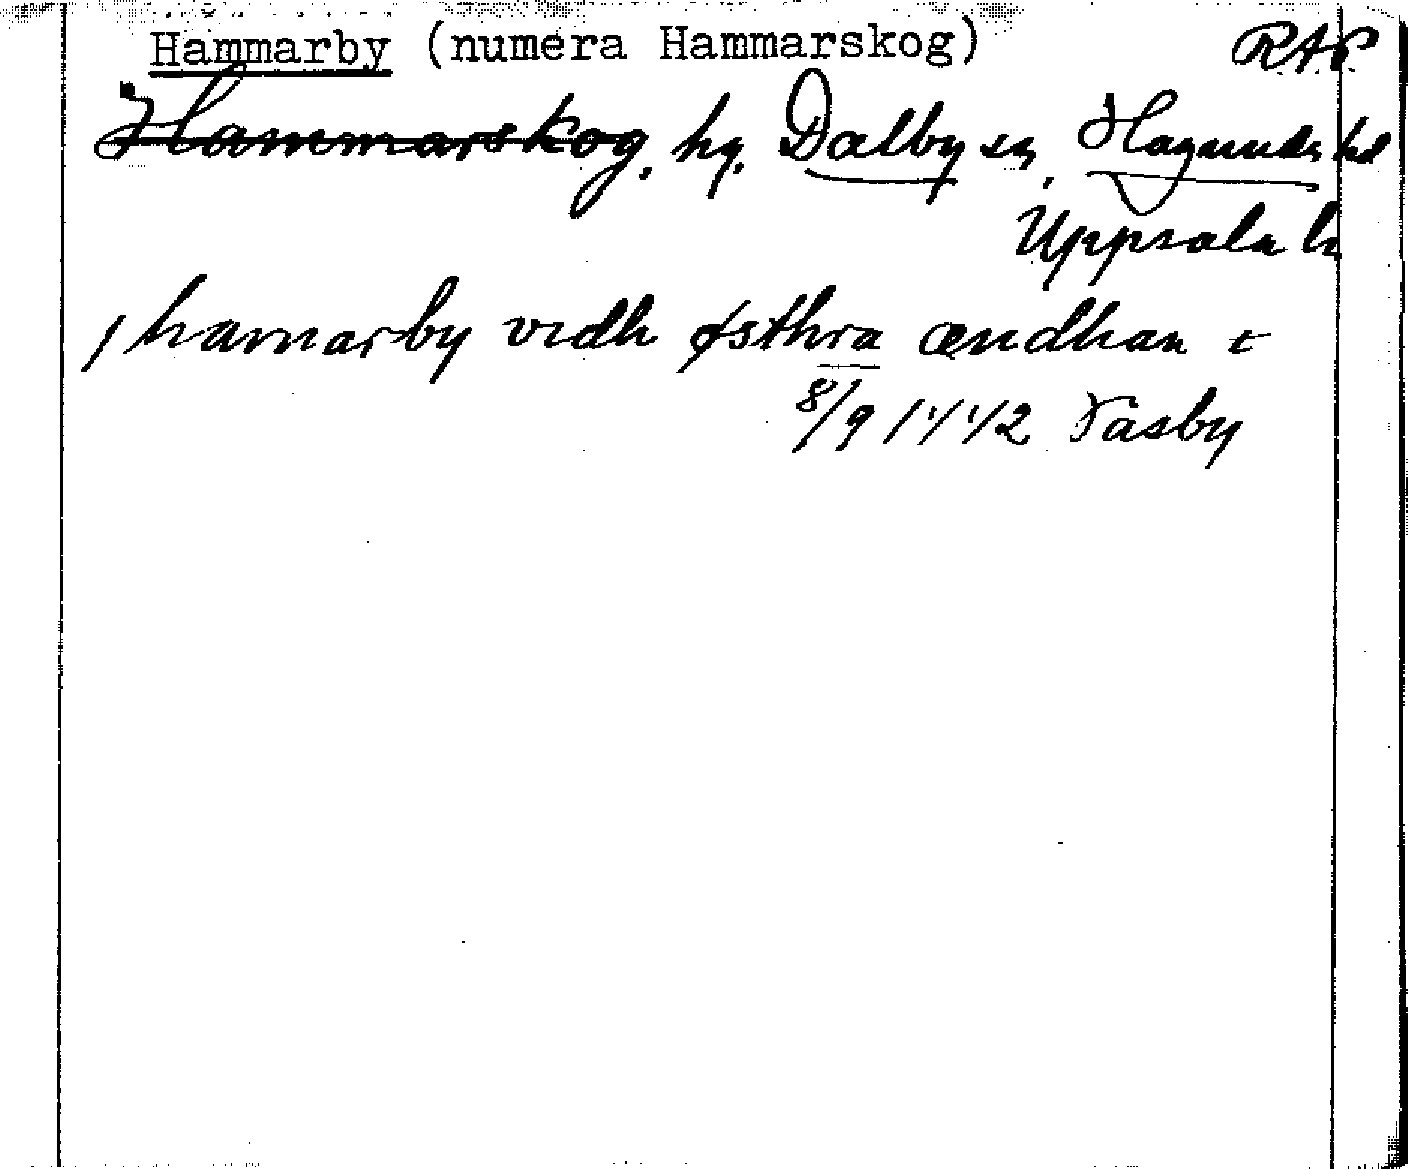 Hammarby (numera Hammarskog) RAP
Hammarskog, hg. Dalby sn, Hagunda hd
Uppsala ln
j hamarby vidh østhra ændhan t
8/9 1442 Väsby